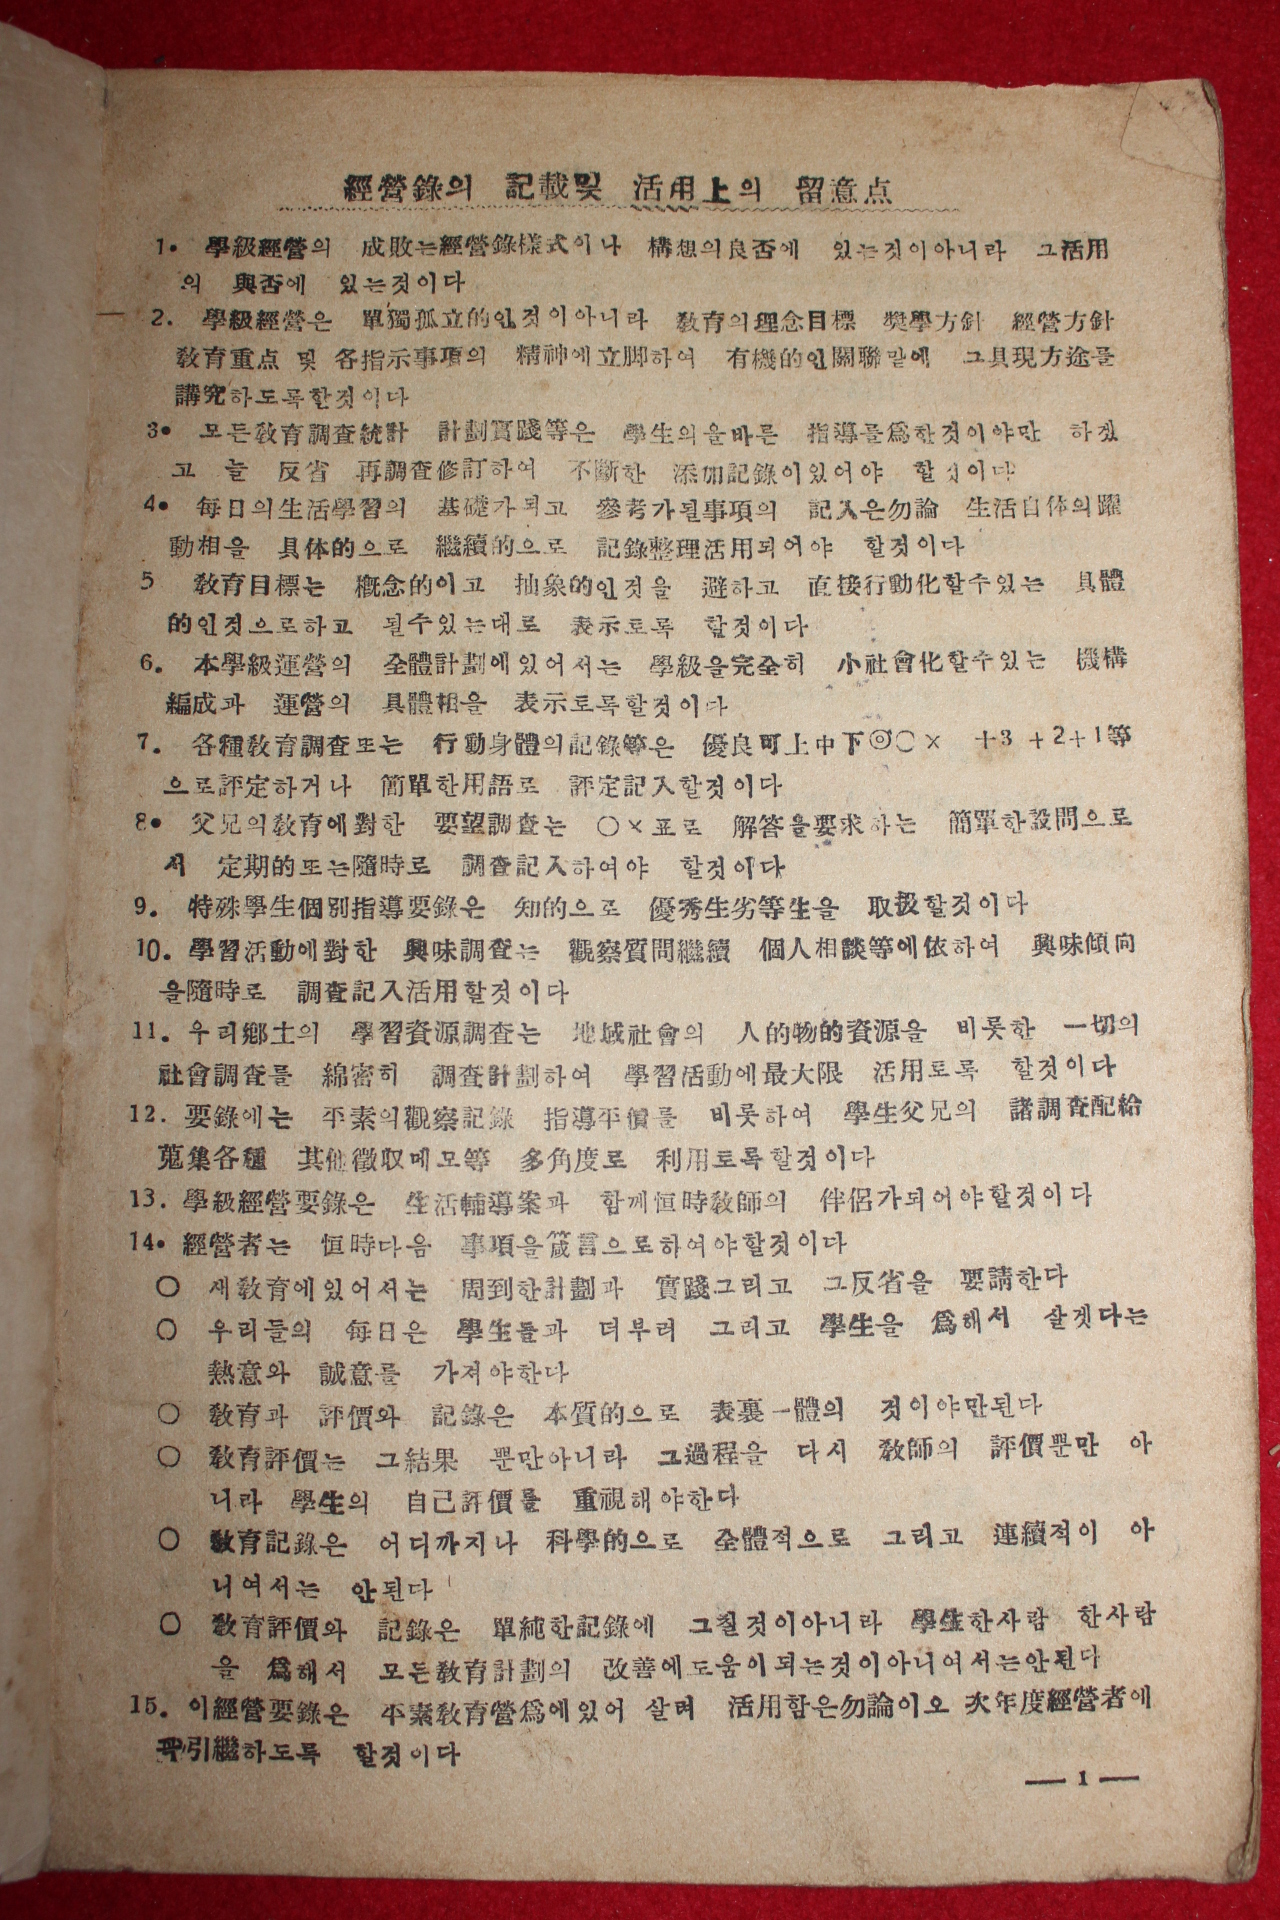 經營錄의 記載및 活用上의 留意点
1. 學級經營의 成敗는經營錄樣式이나 構想의良否에 있는것이아니라 그活用
의 與否에 있는것이다
2. 學級經營은 單獨孤立的인것이아니라 敎育의理念目標 奬學方針 經營方針
敎育重点 및 各指示事項의 精神에立脚하여 有機的인關聯밑에 그具現方途를
講究하도록할것이다
3. 모든敎育調査統計 計劃實踐等은 學生의올바른 指導를爲한것이야만 하겠
고 늘 反省 再調査修訂하여 不斷한 添加記錄이있어야 할것이다
4. 每日의生活學習의 基礎가되고 參考가될事項의 記入은勿論 生活自体의躍
動相을 具体的으로 繼續的으로 記錄整理活用되어야 할것이다
5 敎育目標는 槪念的이고 抽象的인것을 避하고 直接行動化할수있는 具體
的인것으로하고 될수있는대로 表示토록 할것이다
6. 本學級運營의 全體計劃에있어서는 學級을完全히 小社會化할수있는 機構
編成과 運營의 具體相을 表示토록할것이다
7. 各種敎育調査또는 行動身體의記錄等은 優良可上中下◎○× +3 +2+1等
으로評定하거나 簡單한用語로 評定記入할것이다
8. 父兄의敎育에對한 要望調査는 ○×표로 解答을要求하는 簡單한設問으로
서 定期的또는隨時로 調査記入하여야 할것이다
9. 特殊學生個別指導要錄은 知的으로 優秀生劣等生을 取扱할것이다
10. 學習活動에對한 興味調査는 觀察質問繼續 個人相談等에依하여 興味傾向
을隨時로 調査記入活用할것이다
11. 우리鄕土의 學習資源調査는 地域社會의 人的物的資源을 비롯한 一切의
社會調査를 綿密히 調査計劃하여 學習活動에最大限 活用토록 할것이다
12. 要錄에는 平素의觀察記錄 指導平價를 비롯하여 學生父兄의 諸調査配給
蒐集各種 其他徵収메모等 多角度로 利用토록할것이다
13. 學級經營要錄은 生活輔導案과 함께恒時敎師의 伴侶가되어야할것이다
14. 經營者는 恒時다음 事項을箴言으로하여야할것이다
○ 새敎育에있어서는 周到한計劃과 實踐그리고 그反省을 要請한다
○ 우리들의 每日은 學生들과 더부러 그리고 學生을 爲해서 살겠다는
熱意와 誠意를 가져야한다
○ 敎育과 評價와 記錄은 本質的으로 表裏一體의 것이야만된다
○ 敎育評價는 그結果 뿐만아니라 그過程을 다시 敎師의 評價뿐만 아
니라 學生의 自己評價를 重視해야한다
○ 敎育記錄은 어디까지나 科學的으로 全體적으로 그리고 連續적이 아
니여서는 안된다
○ 敎育評價와 記錄은 單純한記錄에 그칠것이아니라 學生한사람 한사람
을 爲해서 모든敎育計劃의 改善에도움이되는것이아니여서는안된다
15. 이經營要錄은 平素敎育營爲에있어 살려 活用함은勿論이오 次年度經營者에
꼭引繼하도록 할것이다
— 1 —